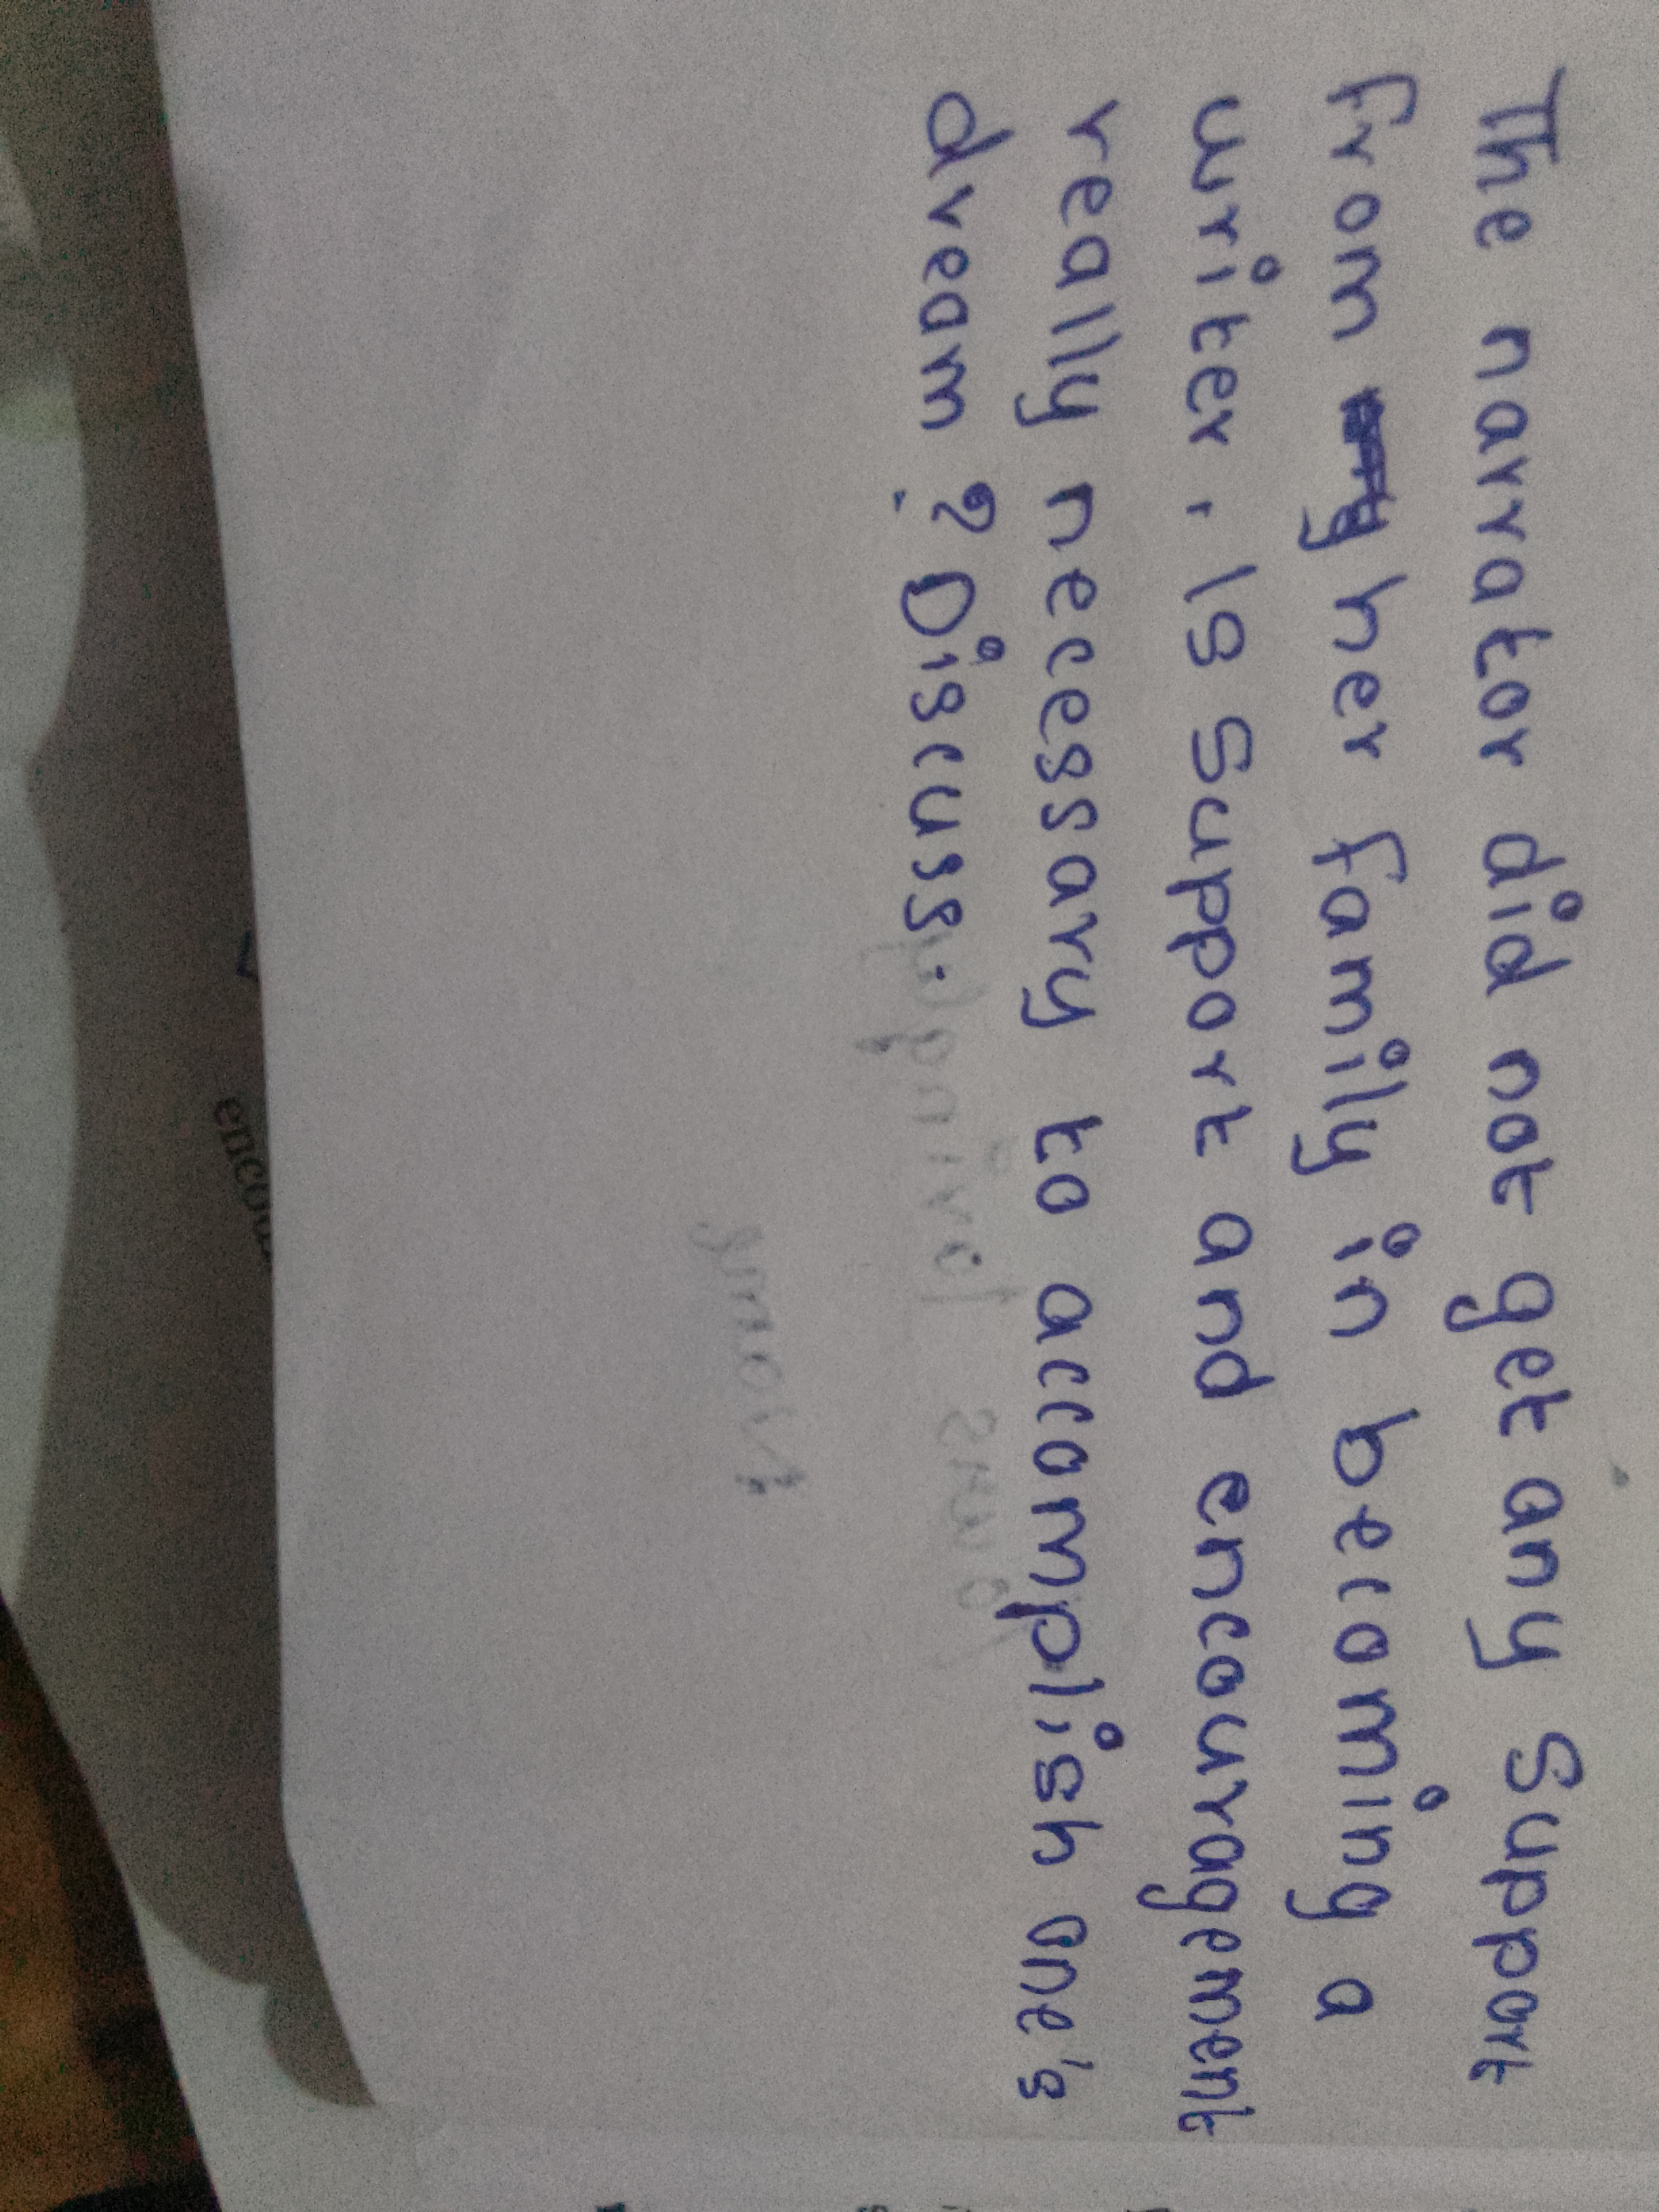 The narrator did not get any support
from her family in becoming a
writer. Is support and encouragement
really necessary to accomplish one's
dream? Discuss.